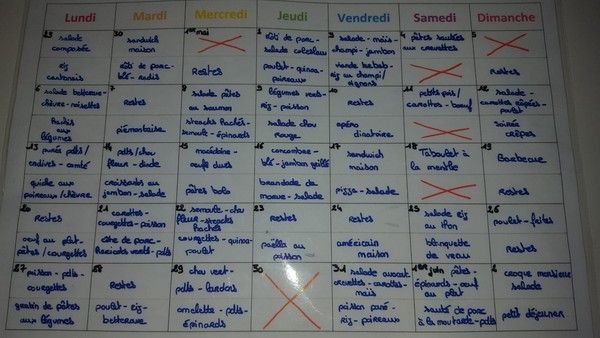 Lundi Mardi Mercredi Jeudi Vendredi Samedi Dimanche
29 salade composée
30 sandwich maison
1er mai
2 rôti de porc - salade coleslaw
3 salade - maïs - champi - jambon
4 pâtes sautées aux crevettes
5
riz cantonais
rôti de porc - blé - radis
Restes
poulet - quinoa - poireaux
viande kebab - riz aux champi / oignons
Restes
6 salade betterave - chèvre - noisettes
7 Restes
8 salade pâtes au saumon
9 légumes verts - riz - poisson
10 Restes
11 petits pois / carottes - boeuf
12 salade - carottes râpées - poulet
Hachis aux légumes
piémontaise
steacks hachés - semoule - épinards
salade chou rouge
apéro dinatoire
soirée crêpes
13 purée pdts / endives - comté
14 pdts / chou fleur - dinde
15 macédoine - oeufs durs
16 concombre - blé - jambon grillé
17 sandwich maison
18 Taboulet à la menthe
19 Barbecue
quiche aux poireaux / chèvre
croissants au jambon - salade
pâtes bolo
brandade de morue - salade
pizza - salade
Restes
20 Restes
21 carottes - courgettes - poisson
22 semoule - chou fleur - steacks hachés
23 restes
24 restes
25 salade riz au thon
26 poulet - frites
oeuf au plat - pâtes / courgettes
côte de porc - haricots verts - pdts
courgettes - quinoa - poulet
paëlla au poisson
américain maison
blanquette de veau
Restes
27 poisson - pdts - courgettes
28 Restes
29 chou vert - pdts - lardons
30
31 salade avocat - crevettes - carottes - maïs
1er juin pâtes - épinards - oeuf au plat
2 croque monsieur salade
gratin de pâtes aux légumes
poulet - riz - betterave
omelette - pdts - épinards
poisson pané - riz - poireaux
sauté de porc à la moutarde - pdts
petit déjeuner